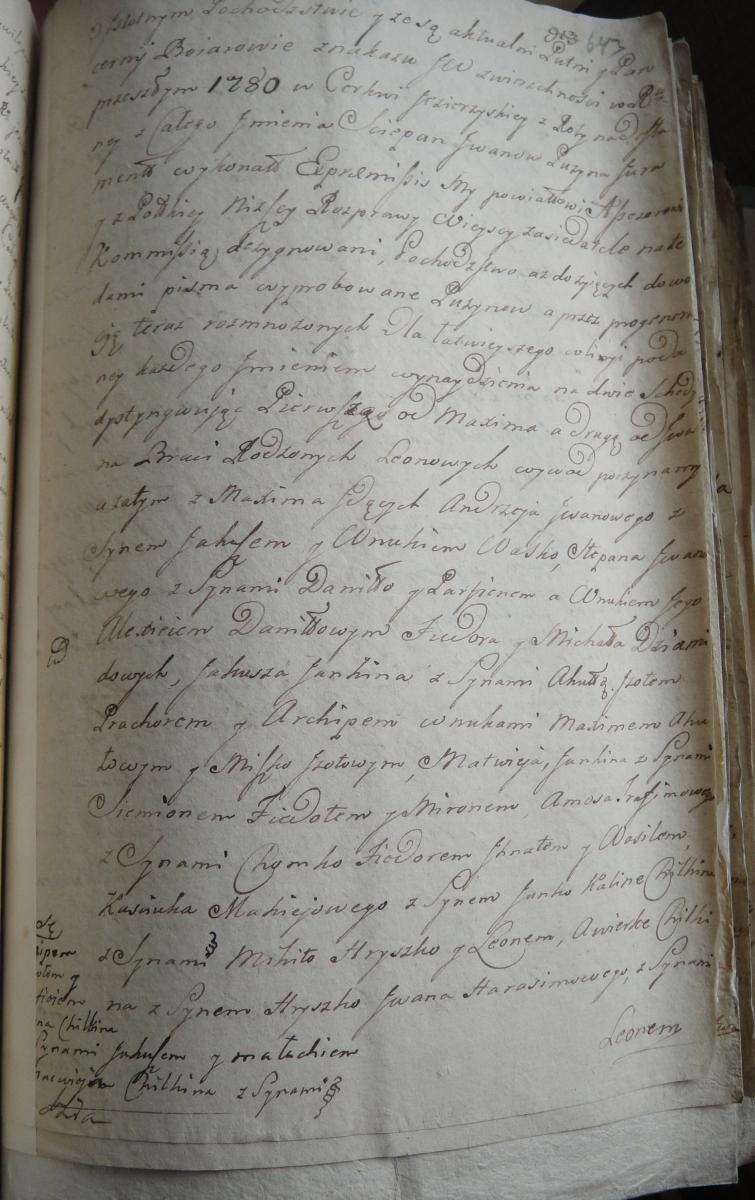 istotnym Pochodzstwie y że są aktualni Putni y Pan
647
cerni Boiarowie znakazu JW zwierzchności w
przeszłym 1780 w Cerkwi Jezierzyskiey z Roty
ney z Całego Jmienia Sciepan Jwanow Puzyna Jura
ment wykonał Epræmissis My powiatowi Assesorowie
y z Połockiey Niższey Rozprawy Wieyscy zasiadaiele na tę
Kommissią dezygnowani, Pochodzstwo aż do żyiących dowo
dami pisma wyprobowane Puzynow a przez progenitu
rę teraz rozmnożonych Dla łatwieyszego w liniyi poda
ney każdego Jmieniem wynaydzienia na dwie Schedy
dystyngwuiąc Pierwszą od Maxima a drugą od Jwa
na Braci Rodzonych Leonowych wywod poczynamy
a zatym z Maxima Jdących Andrzeja Jwanowego z
Synem Jakusem y Wnukiem Wasko, Stepana Jwano
wego z Synami Daniłło y Parfienem a Wnukiem Jego
Alexieiem Daniłłowym Fiedora y Michała Dziemi
dowych, Jakusza Jankina z Synami Akułłą Jzotem
Prachorem y Archipem wnukami Maximem Aku
łowym y Miśko Jzotowym, Matwieja, Jankina z Synami
Siemionem Fiedotem y Mironem, Amosa Trafimowego
z Synami Chomko Fiedorem Jhnatem y Wasilem,
Kaśiuka Maciejowego z Synem Janko Kalinę Chilkina
z Synami Mikito Hryszko y Leonem, Awierkę Chilki
na z Synem Hryszko Jwana Harasimowego, z Synami
Leonem
ipem
y
na Chilkina
Synami Jakusem y małachiem
Chilkina z Synami